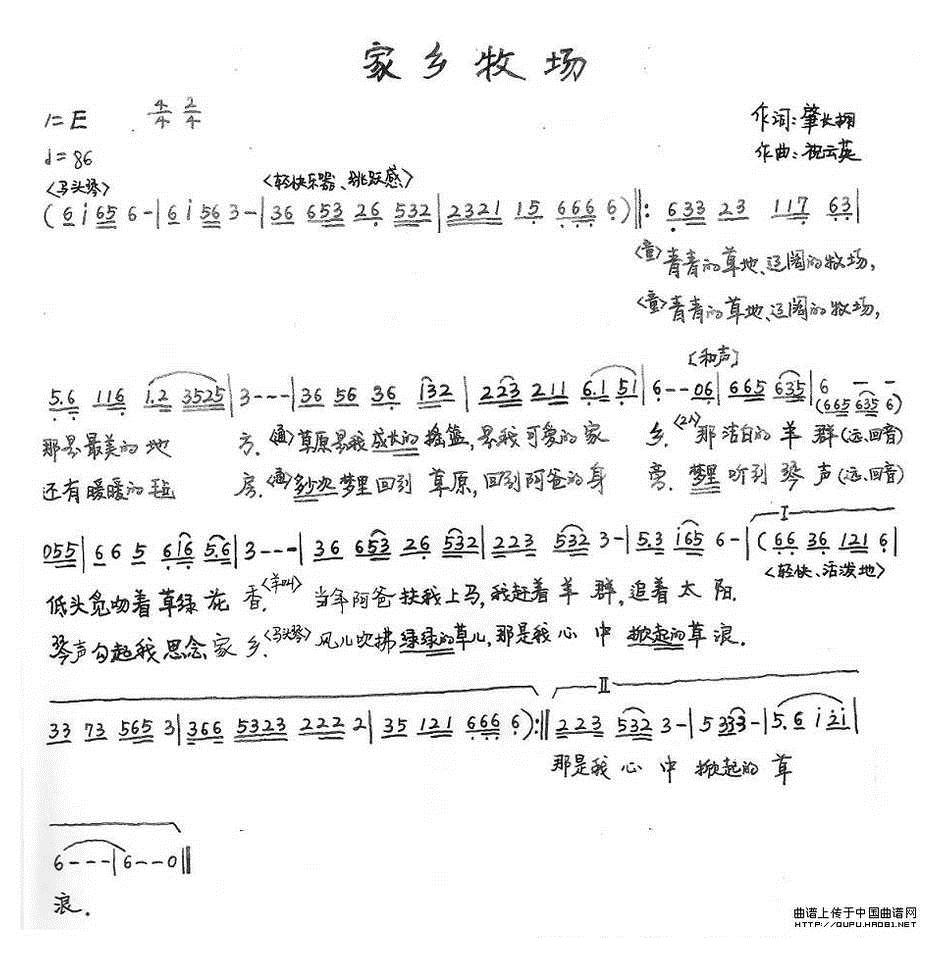 家乡牧场
1=E 4/4 2/4
作词:肇长翔
♩=86
作曲:祝云英
<马头琴> <轻快乐器、跳跃感>
(6 i 65 6-|6 i 56 3-|36 653 26 532|2321 15 666 6)‖: 633 23 117 63|
<童>青青的草地、辽阔的牧场,
<童>青青的草地、辽阔的牧场,
[和声]
5.6 116 1.2 3525|3---|36 56 36 i32|223 211 6.1 51|6--06|665 635|6 - -
(665 635 6)
那是最美的地 方.<画>草原是我成长的摇篮,是我可爱的家 乡.<2人>那洁白的羊 群(远、回音)
还有暖暖的毡 房.<画>多少次梦里回到 草原,回到阿爸的身 旁. 梦里 听到 琴 声(远、回音)
I
055|66 5 6i6 5.6|3---|36 653 26 532|223 532 3-|5.3 i65 6-|(66 36 121 6|
<轻快、活泼地>
低头觅吻着草绿花 香.<羊叫> 当年阿爸扶我上马,我赶着羊 群,追着太 阳.
琴声勾起我思念家 乡.<马头琴> 风儿吹拂绿绿的草儿,那是我心 中 掀起的草浪.
II
33 73 565 3|366 5323 222 2|35 121 666 6):‖223 532 3-|5 333-|5.6 i 2i|
那是我 心 中 掀起的 草
6---|6--0‖
浪.
曲谱上传于中国曲谱网
HTTP://QUPU.HAO81.NET